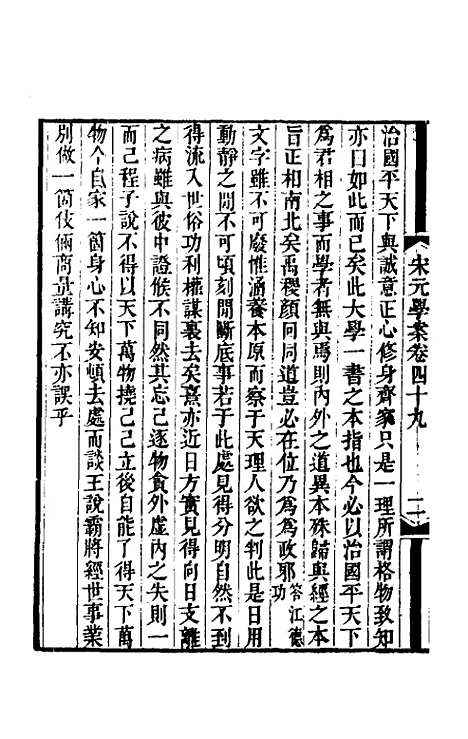 宋元學案卷四十九
二
治國平天下與誠意正心修身齊家只是一理所謂格物致知
亦曰如此而已矣此大學一書之本指也今必以治國平天下
為君相之事而學者無與焉則內外之道異本殊歸與經之本
旨正相南北矣禹稷顏回同道豈必在位乃為為政耶答江德功
文字雖不可廢惟涵養本原而察于天理人欲之判此是日用
動靜之間不可頃刻間斷底事若于此處見得分明自然不到
得流入世俗功利權謀裏去矣熹亦近日方實見得向日支離
之病雖與彼中證候不同然其忘己逐物貪外虛內之失則一
而已程子說不得以天下萬物撓己己立後自能了得天下萬
物今自家一箇身心不知安頓去處而談王說霸將經世事業
別做一箇伎倆商量講究不亦誤乎